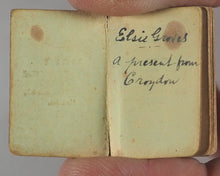 Elsie Groves
A present from
Croydon